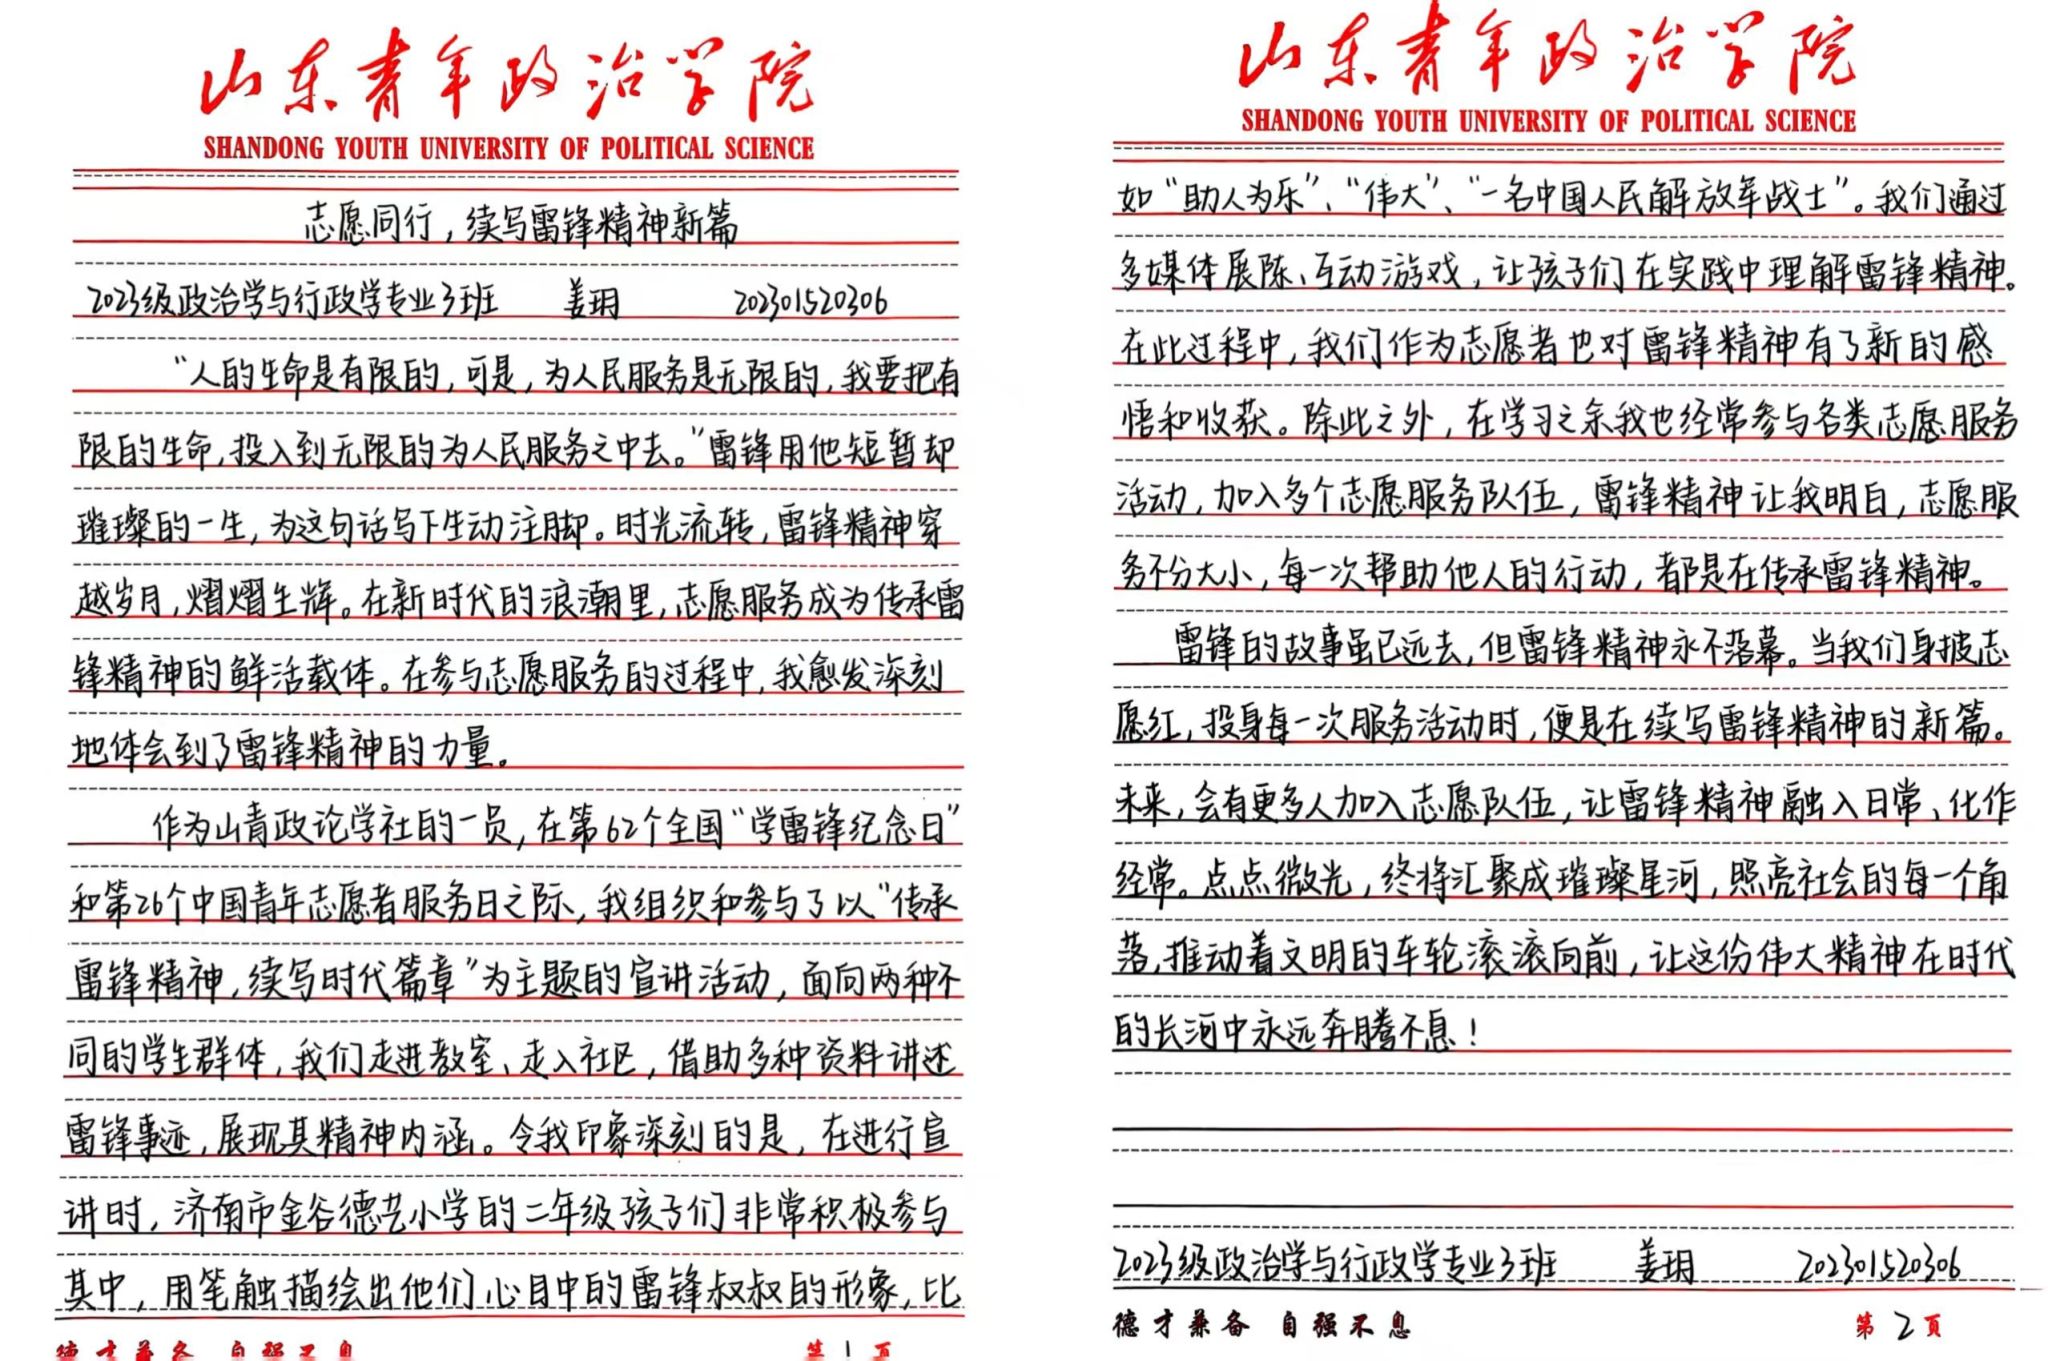 山东青年政治学院
SHANDONG YOUTH UNIVERSITY OF POLITICAL SCIENCE
志愿同行，续写雷锋精神新篇
2023级政治学与行政学专业3班 姜玥 202301520306
“人的生命是有限的，可是，为人民服务是无限的，我要把有
限的生命，投入到无限的为人民服务之中去。”雷锋用他短暂却
璀璨的一生，为这句话写下生动注脚。时光流转，雷锋精神穿
越岁月，熠熠生辉。在新时代的浪潮里，志愿服务成为传承雷
锋精神的鲜活载体。在参与志愿服务的过程中，我愈发深刻
地体会到了雷锋精神的力量。
作为山青政论学社的一员，在第62个全国“学雷锋纪念日”
和第26个中国青年志愿者服务日之际，我组织和参与了以“传承
雷锋精神，续写时代篇章”为主题的宣讲活动，面向两种不
同的学生群体，我们走进教室、走入社区，借助多种资料讲述
雷锋事迹，展现其精神内涵。令我印象深刻的是，在进行宣
讲时，济南市金谷德艺小学的二年级孩子们非常积极参与
其中，用笔触描绘出他们心目中的雷锋叔叔的形象，比
德才兼备 自强不息
第1页
山东青年政治学院
SHANDONG YOUTH UNIVERSITY OF POLITICAL SCIENCE
如“助人为乐”、“伟大”、“一名中国人民解放军战士”。我们通过
多媒体展陈、互动游戏，让孩子们在实践中理解雷锋精神。
在此过程中，我们作为志愿者也对雷锋精神有了新的感
悟和收获。除此之外，在学习之余我也经常参与各类志愿服务
活动，加入多个志愿服务队伍，雷锋精神让我明白，志愿服
务不分大小，每一次帮助他人的行动，都是在传承雷锋精神。
雷锋的故事虽已远去，但雷锋精神永不落幕。当我们身披志
愿红，投身每一次服务活动时，便是在续写雷锋精神的新篇。
未来，会有更多人加入志愿队伍，让雷锋精神融入日常、化作
经常。点点微光，终将汇聚成璀璨星河，照亮社会的每一个角
落，推动着文明的车轮滚滚向前，让这份伟大精神在时代
的长河中永远奔腾不息！
2023级政治学与行政学专业3班 姜玥 202301520306
德才兼备 自强不息
第2页